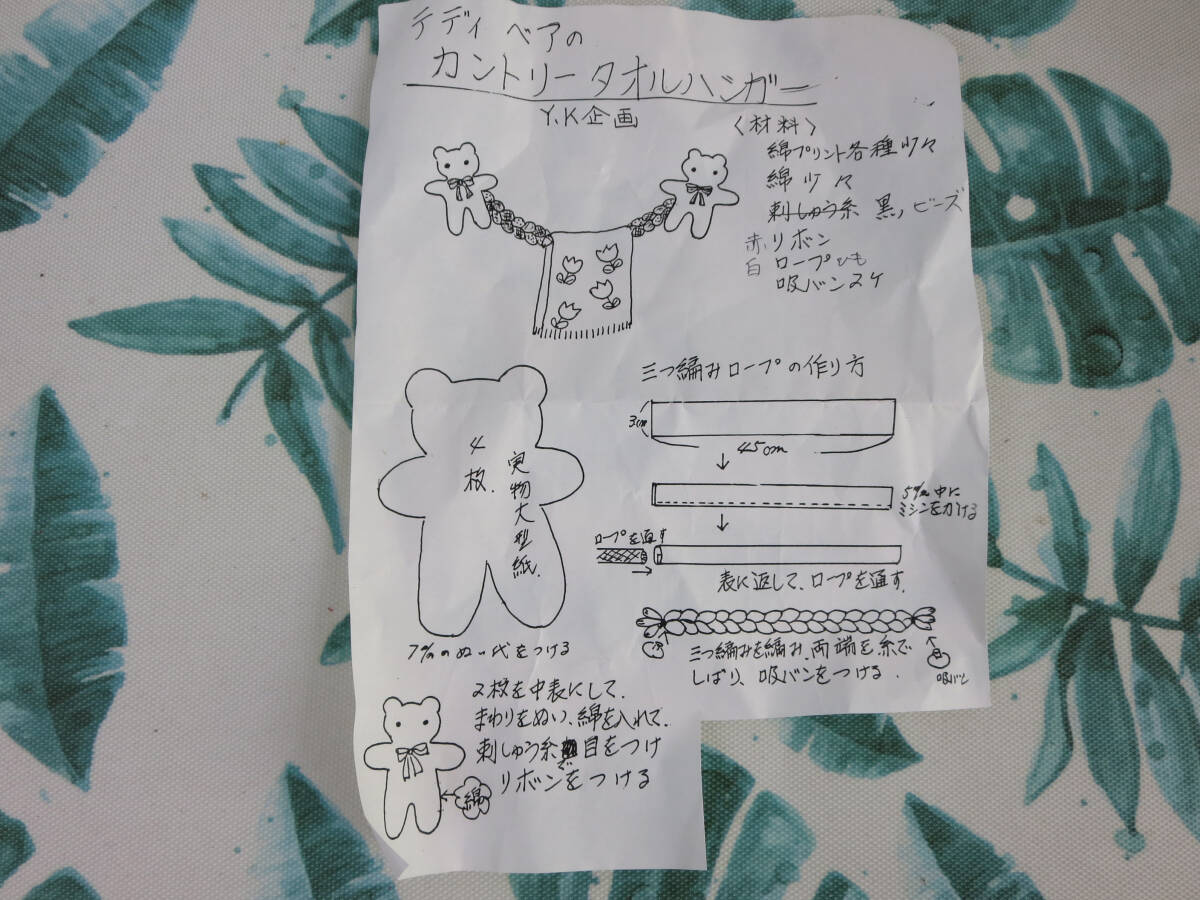 テディ ベアの
カントリー タオルハンガー
Y.K企画
〈材料〉
綿プリント各種少々
綿少々
刺しゅう糸 黒,ビーズ
赤,リボン
白 ロープひも
吸バン2ケ
三つ編みロープの作り方
3cm
45cm
4枚.
実物大型紙.
5㎜中に
ミシンをかける
ロープを通す
表に返して、ロープを通す.
7㎜のぬい代をつける
三つ編みを編み、両端を糸で
しばり、吸バンをつける.
吸バン
2枚を中表にして、
まわりをぬい、綿を入れて、
刺しゅう糸で目をつけ
リボンをつける
綿